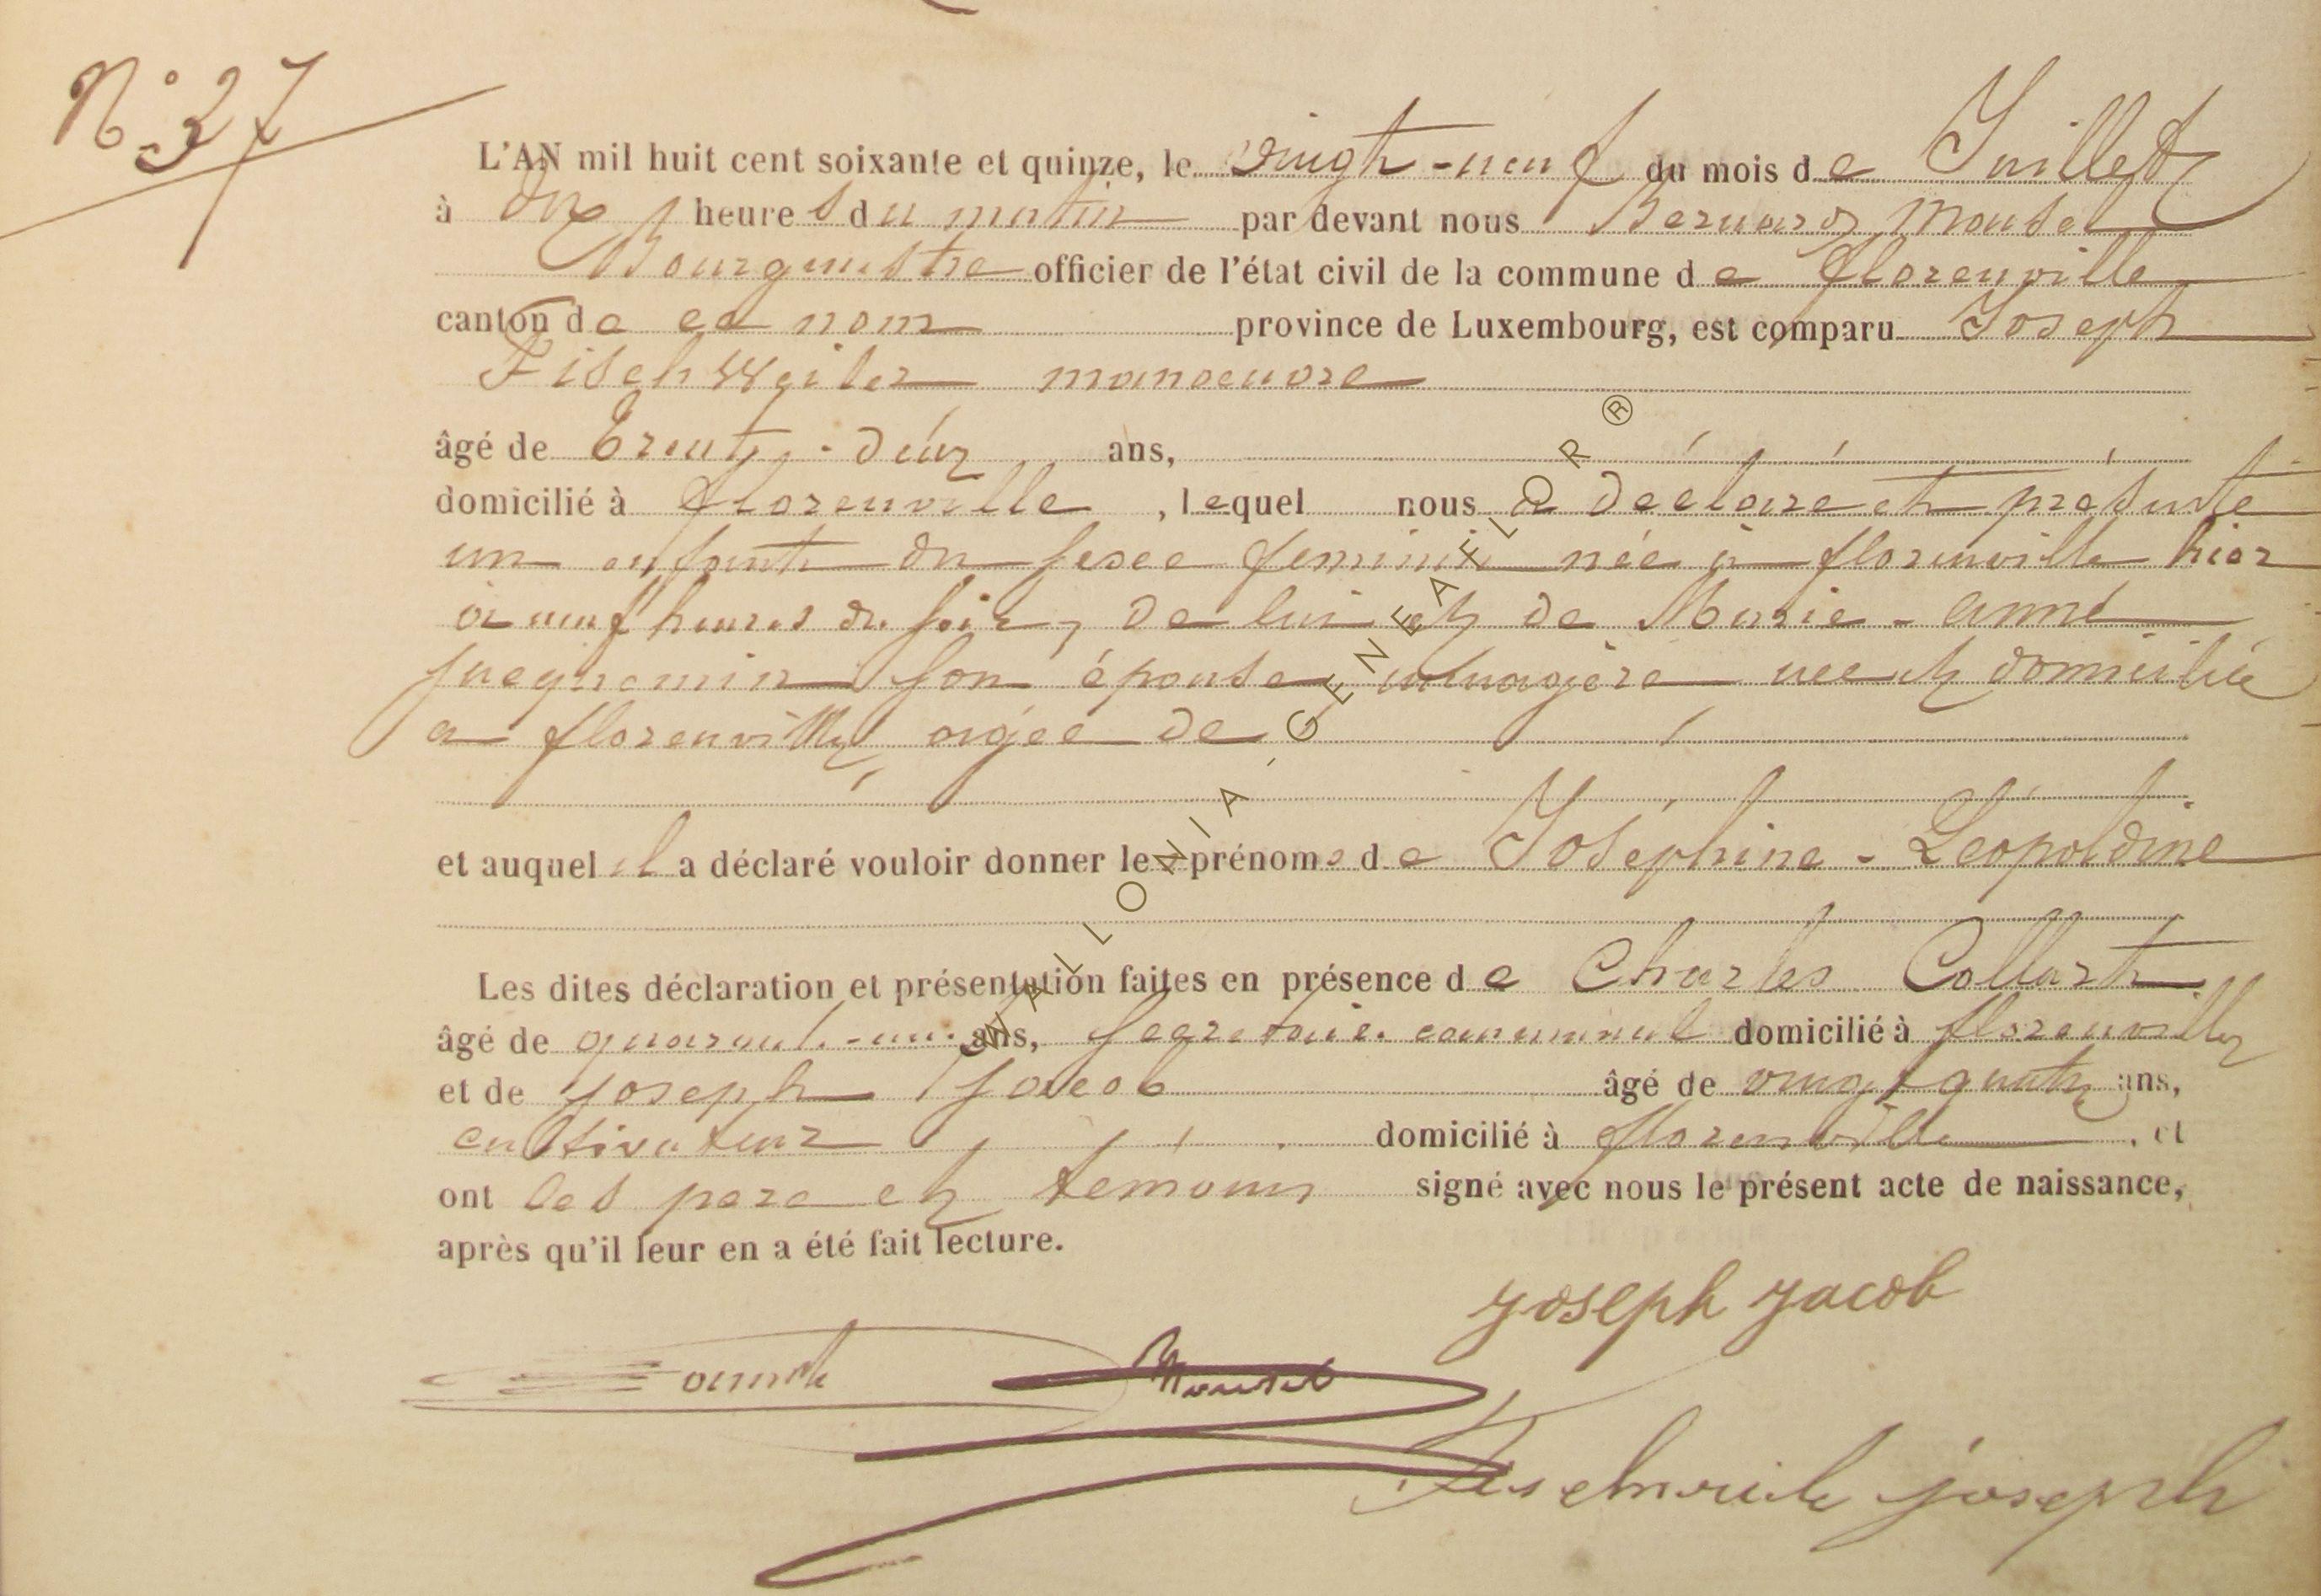 N° 37
L'AN mil huit cent soixante et quinze, le vingt-neuf du mois de Juillet
à dix heures du matin par devant nous Bernard Mousel
Bourgmestre officier de l'état civil de la commune de florenville
canton de ce nom province de Luxembourg, est comparu Joseph
Fischweiler manoeuvre
âgé de trente-deux ans,
domicilié à florenville, lequel nous a déclaré et présenté
un enfant du sexe feminin née à florenville hier
à neuf heures du soir, de lui et de Marie-anne
Jacqnemin son épouse ménagère née et domiciliée
a florenville agée de
et auquel il a déclaré vouloir donner les prénoms de Joséphine-Léopoldine
Les dites déclaration et présentation faites en présence de Charles Collart
âgé de quarante-un ans, secretaire communal domicilié à florenville
et de joseph jacob âgé de vingt quatre ans,
cultivateur domicilié à florenville, et
ont les père et témoins signé avec nous le présent acte de naissance,
après qu'il leur en a été fait lecture.
joseph jacob
Mousel
joseph
WALLONIA - GENEAFLOR ®